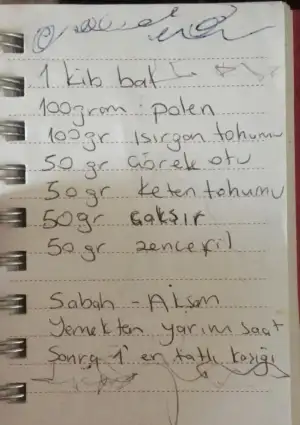 1 kib bal
100gram polen
100gr ısırgan tohumu
50 gr Çörek otu
50 gr keten tohumu
50gr Çakşır
50 gr zencefil
Sabah - Akşam
Yemekten yarım saat
Sonra 1'er tatlı kaşığı